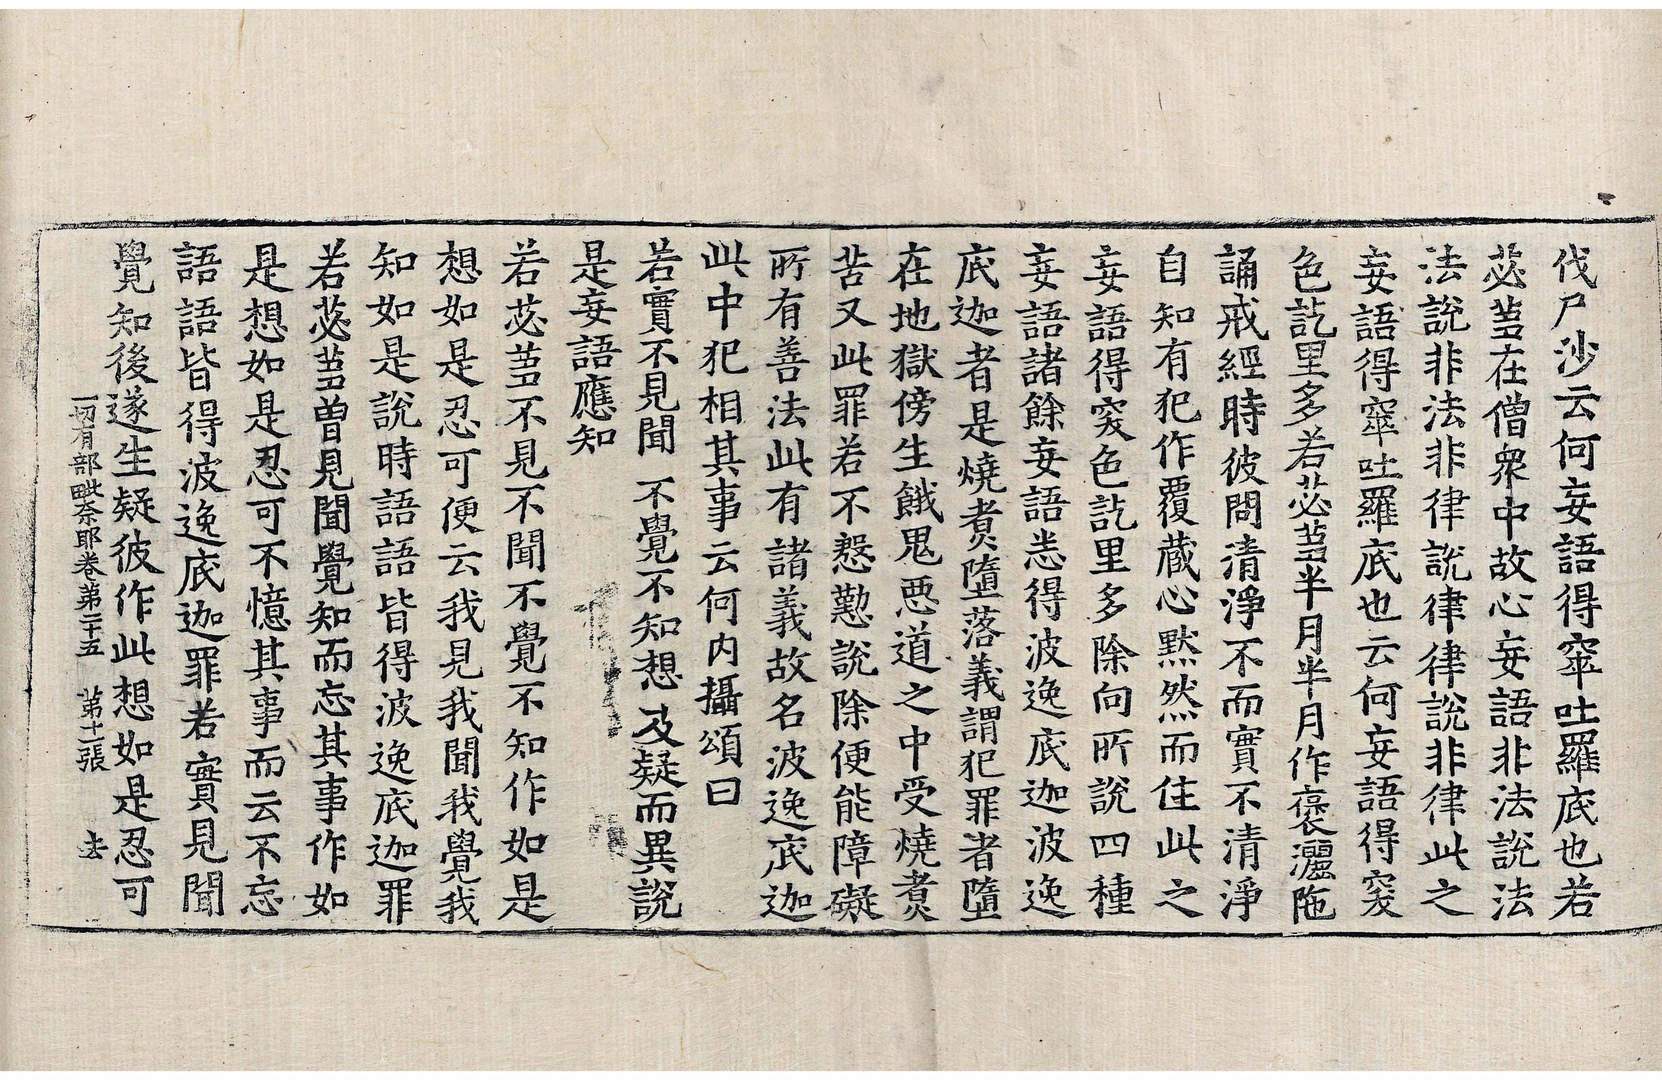 伐尸沙云何妄語得窣吐羅底也若
苾芻在僧衆中故心妄語非法說法
法說非法非律說律律說非律此之
妄語得窣吐羅底也云何妄語得突
色訖里多若苾芻半月半月作褒灑陁
誦戒經時彼問清淨不而實不清淨
自知有犯作覆藏心默然而住此之
妄語得突色訖里多除向所說四種
妄語諸餘妄語悉得波逸底迦波逸
底迦者是燒煑墮落義謂犯罪者墮
在地獄傍生餓鬼惡道之中受燒煑
苦又此罪若不慇懃說除便能障礙
所有善法此有諸義故名波逸底迦
此中犯相其事云何内攝頌曰
若實不見聞 不覺不知想 及疑而異說
是妄語應知
若苾芻不見不聞不覺不知作如是
想如是忍可便云我見我聞我覺我
知如是說時語語皆得波逸底迦罪
若苾芻曾見聞覺知而忘其事作如
是想如是忍可不憶其事而云不忘
語語皆得波逸底迦罪若實見聞
覺知後遂生疑彼作此想如是忍可
一切有部毗奈耶卷第二十五 第十一張 去